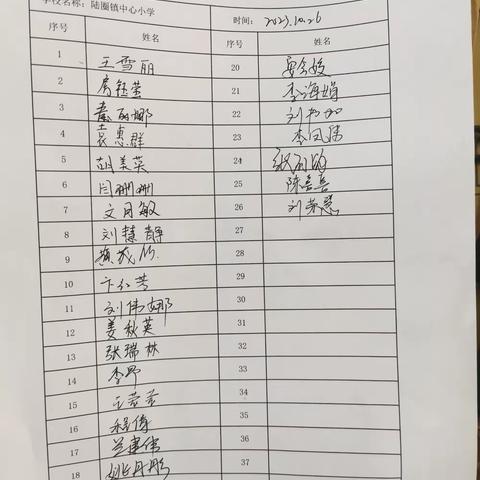 学校名称：陆圈镇中心小学 时间：2023.10.26
序号 姓名 序号 姓名
1 王雪丽 20
2 房钰荣 21 李海娟
3 秦丽娜 22
4 袁惠群 23 李凤伟
5 胡美英 24
6 闫珊珊 25 陈善喜
7 文月敏 26 刘荣慧
8 刘慧静 27
9 28
10 卞红芳 29
11 刘伟娜 30
12 姜秋英 31
13 张瑞林 32
14 李野 33
15 王芸芸 34
16 35
17 兰建伟 36
18 姚丹彤 37